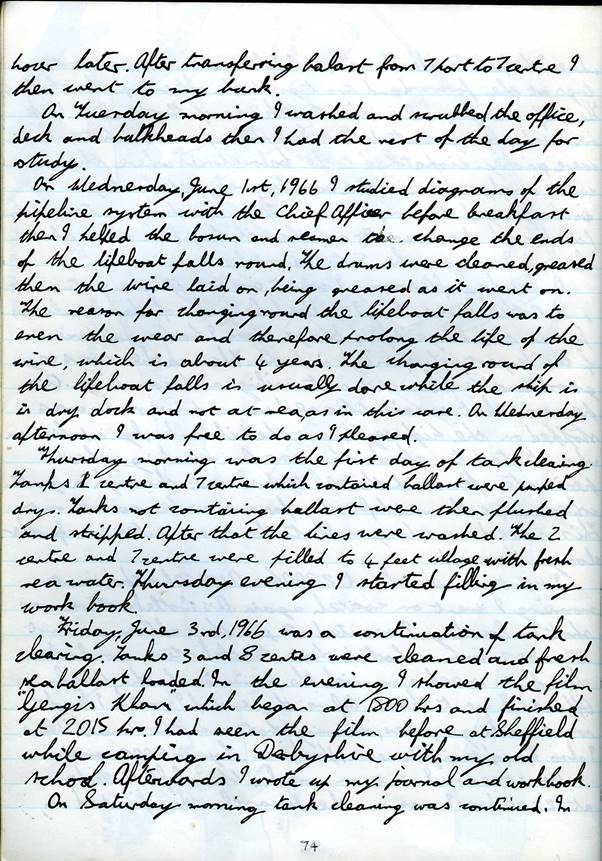 hour later. After transferring balast from 7 port to 7 centre I
then went to my bunk.
On Tuesday morning I washed and scrubbed the office,
deck and bulkheads then I had the rest of the day for
study.
On Wednesday, June 1st, 1966 I studied diagrams of the
pipeline system with the Chief Officer before breakfast
then I helped the bosun and seamen to change the ends
of the lifeboat falls round. The drums were cleaned, greased
then the wire laid on, being greased as it went on.
The reason for changing round the lifeboat falls was to
even the wear and therefore prolong the life of the
wire, which is about 4 years. The changing round of
the lifeboat falls is usually done while the ship is
in dry dock and not at sea, as in this case. On Wednesday
afternoon I was free to do as I pleased.
Thursday morning was the first day of tank cleaing.
Tanks centre and 7 centre which contained ballast were pumped
drys. Tanks not containing ballast were then flushed
and stripped. After that the lines were washed. The 2
centre and 7 centre were filled to 4 feet ullage with fresh
sea water. Thursday evening I started filling in my
work book.
Friday, June 3rd, 1966 was a continuation of tank
cleaning. Tanks 3 and 8 centes were cleaned and fresh
sea ballast loaded. In the evening I showed the film
"Gengis Khan" which began at 1800 hrs and finished
at 2015 hrs. I had seen the film before at Sheffield
while camping in Derbyshire with my old
school. Afterwards I wrote up my journal and workbook.
On Saturday morning tank cleaning was continued. In
74